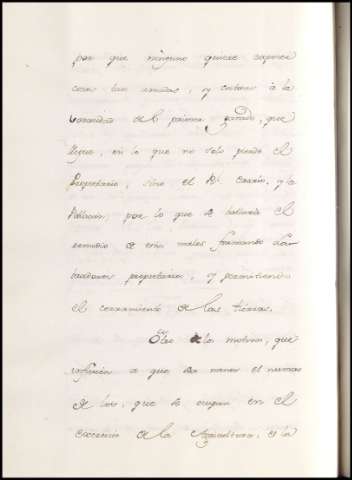 por que ninguno quiere exponer
cosa tan amada, y entran à la
del primer ganado, que
llegue, en lo que no solo pierde el
Propietario, sino el Rl. Erario, y la
Nacion; por lo que se hallaria el
remedio de estos males formando
labradores propietarios, y permitiendo
el cerramiento de las tierras.
Otro de los motivos, que
influyen a que sea menor el numero
de los, que se ocupan en el
exercicio de la Agricultura, es la